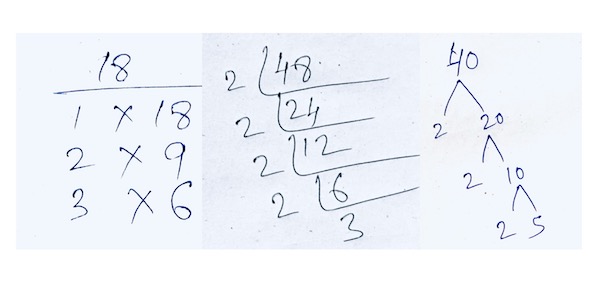 18
1 × 18
2 × 9
3 × 6
2 48
2 24
2 12
2 6
3
40
2 20
2 10
2 5